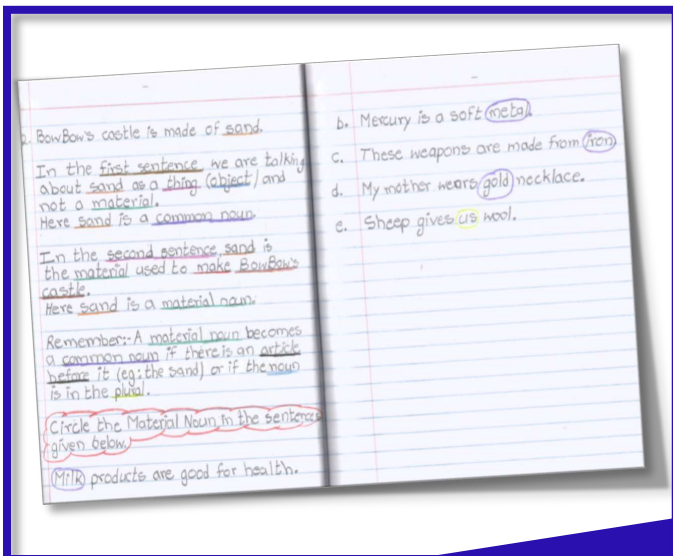 2. BowBow's castle is made of sand.
In the first sentence we are talking
about sand as a thing (object) and
not a material.
Here sand is a common noun.
In the second sentence sand is
the material used to make BowBow's
castle.
Here sand is a material noun.
Remember:- A material noun becomes
a common noun if there is an article
before it (eg: the sand) or if the noun
is in the plural.
Circle the Material Noun in the sentences
given below.
Milk products are good for health.
b. Mercury is a soft metal.
c. These weapons are made from iron
d. My mother wears gold necklace.
e. Sheep gives us wool.